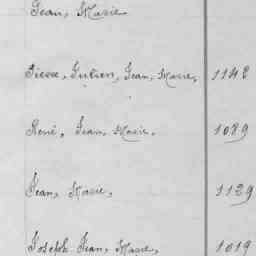 Jean, Marie
Pierre, Julien, Jean, Marie, 1142
René, Jean, Marie, 1089
Jean, Marie, 1129
Joseph-Jean, Marie, 1019